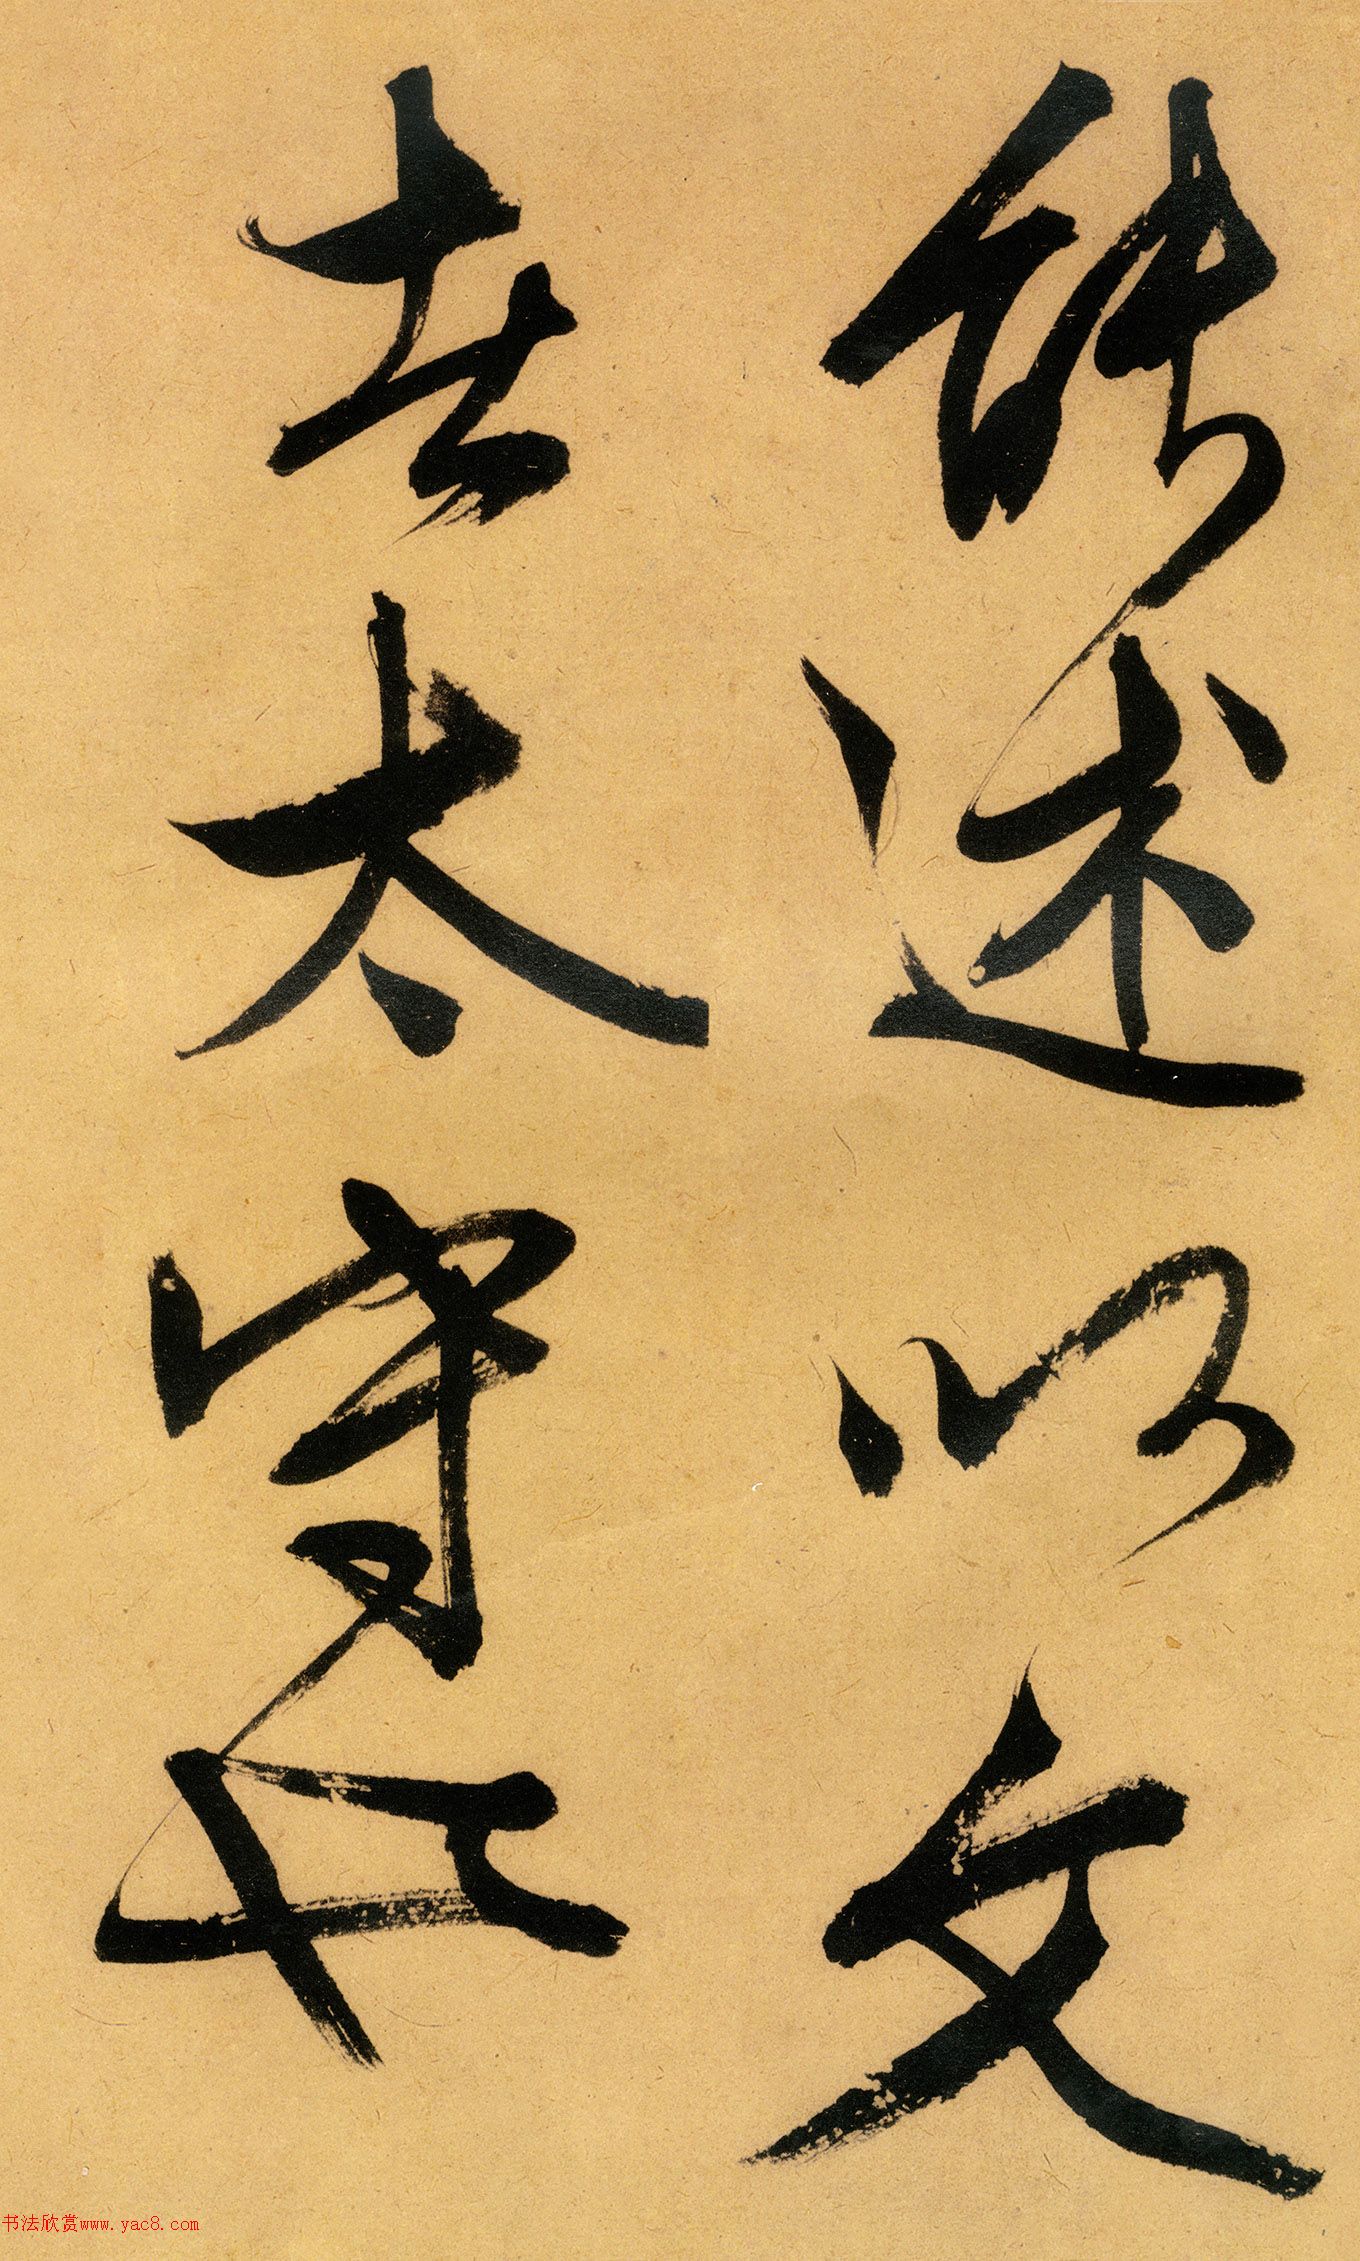 能述以文
者太守也
书法欣赏www.yac8.com